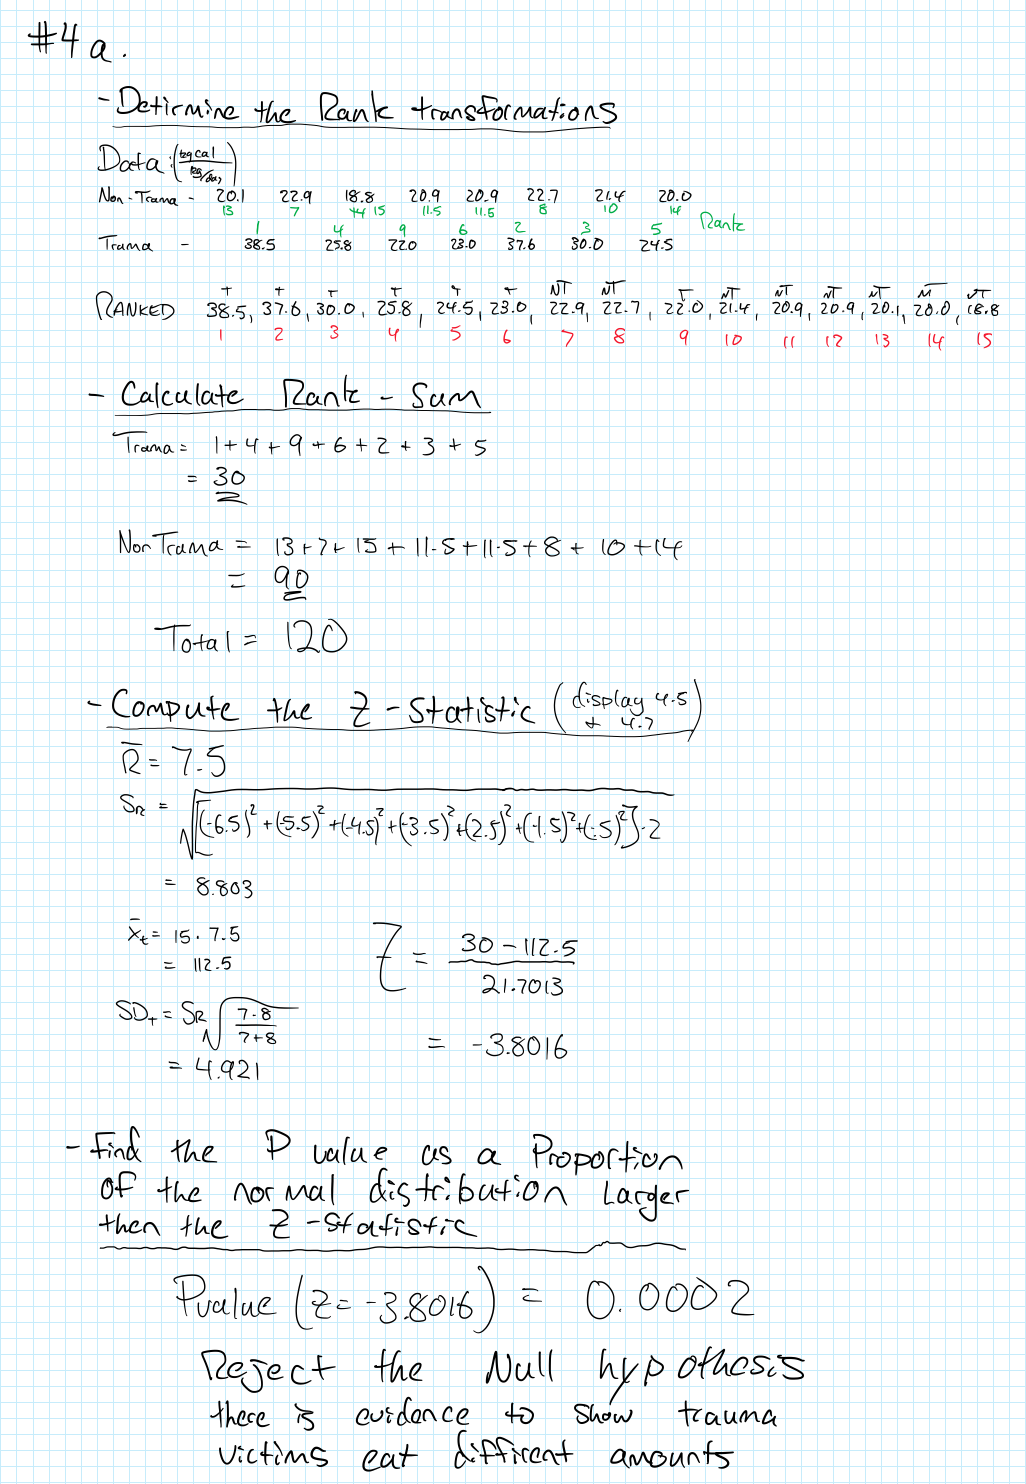 #4 a.
- Detirmine the Rank transformations
Data: (kgcal / kg/day)
Non-Trama - 20.1 22.9 18.8 20.9 20.9 22.7 21.4 20.0
13 7 14 15 11.5 11.5 8 10 14
1 4 9 6 2 3 5 Rank
Trama - 38.5 25.8 22.0 23.0 37.6 30.0 24.5
T T T T T T NT NT T NT NT NT NT NT NT
RANKED 38.5, 37.6, 30.0, 25.8, 24.5, 23.0, 22.9, 22.7, 22.0, 21.4, 20.9, 20.9, 20.1, 20.0, 18.8
1 2 3 4 5 6 7 8 9 10 11 12 13 14 15
- Calculate Rank - Sum
Trama = 1+4+9+6+2+3+5
= 30
Non Trama = 13+7+15+11.5+11.5+8+10+14
= 90
Total = 120
- Compute the Z-Statistic (display 4.5 + 4.7)
R̄ = 7.5
SR = √[(-6.5)²+(5.5)²+(-4.5)²+(-3.5)²+(2.5)²+(-1.5)²+(-.5)²]·2
= 8.803
x̄t = 15 · 7.5
= 112.5
Z = 30 - 112.5 / 21.7013
SD+ = SR √ 7·8 / 7+8
= -3.8016
= 4.921
- Find the P value as a Proportion
of the normal distribution Larger
then the Z-Statistic
Pvalue (Z = -3.8016) = 0.0002
Reject the Null hypothesis
there is evidence to show trauma
victims eat diffirent amounts